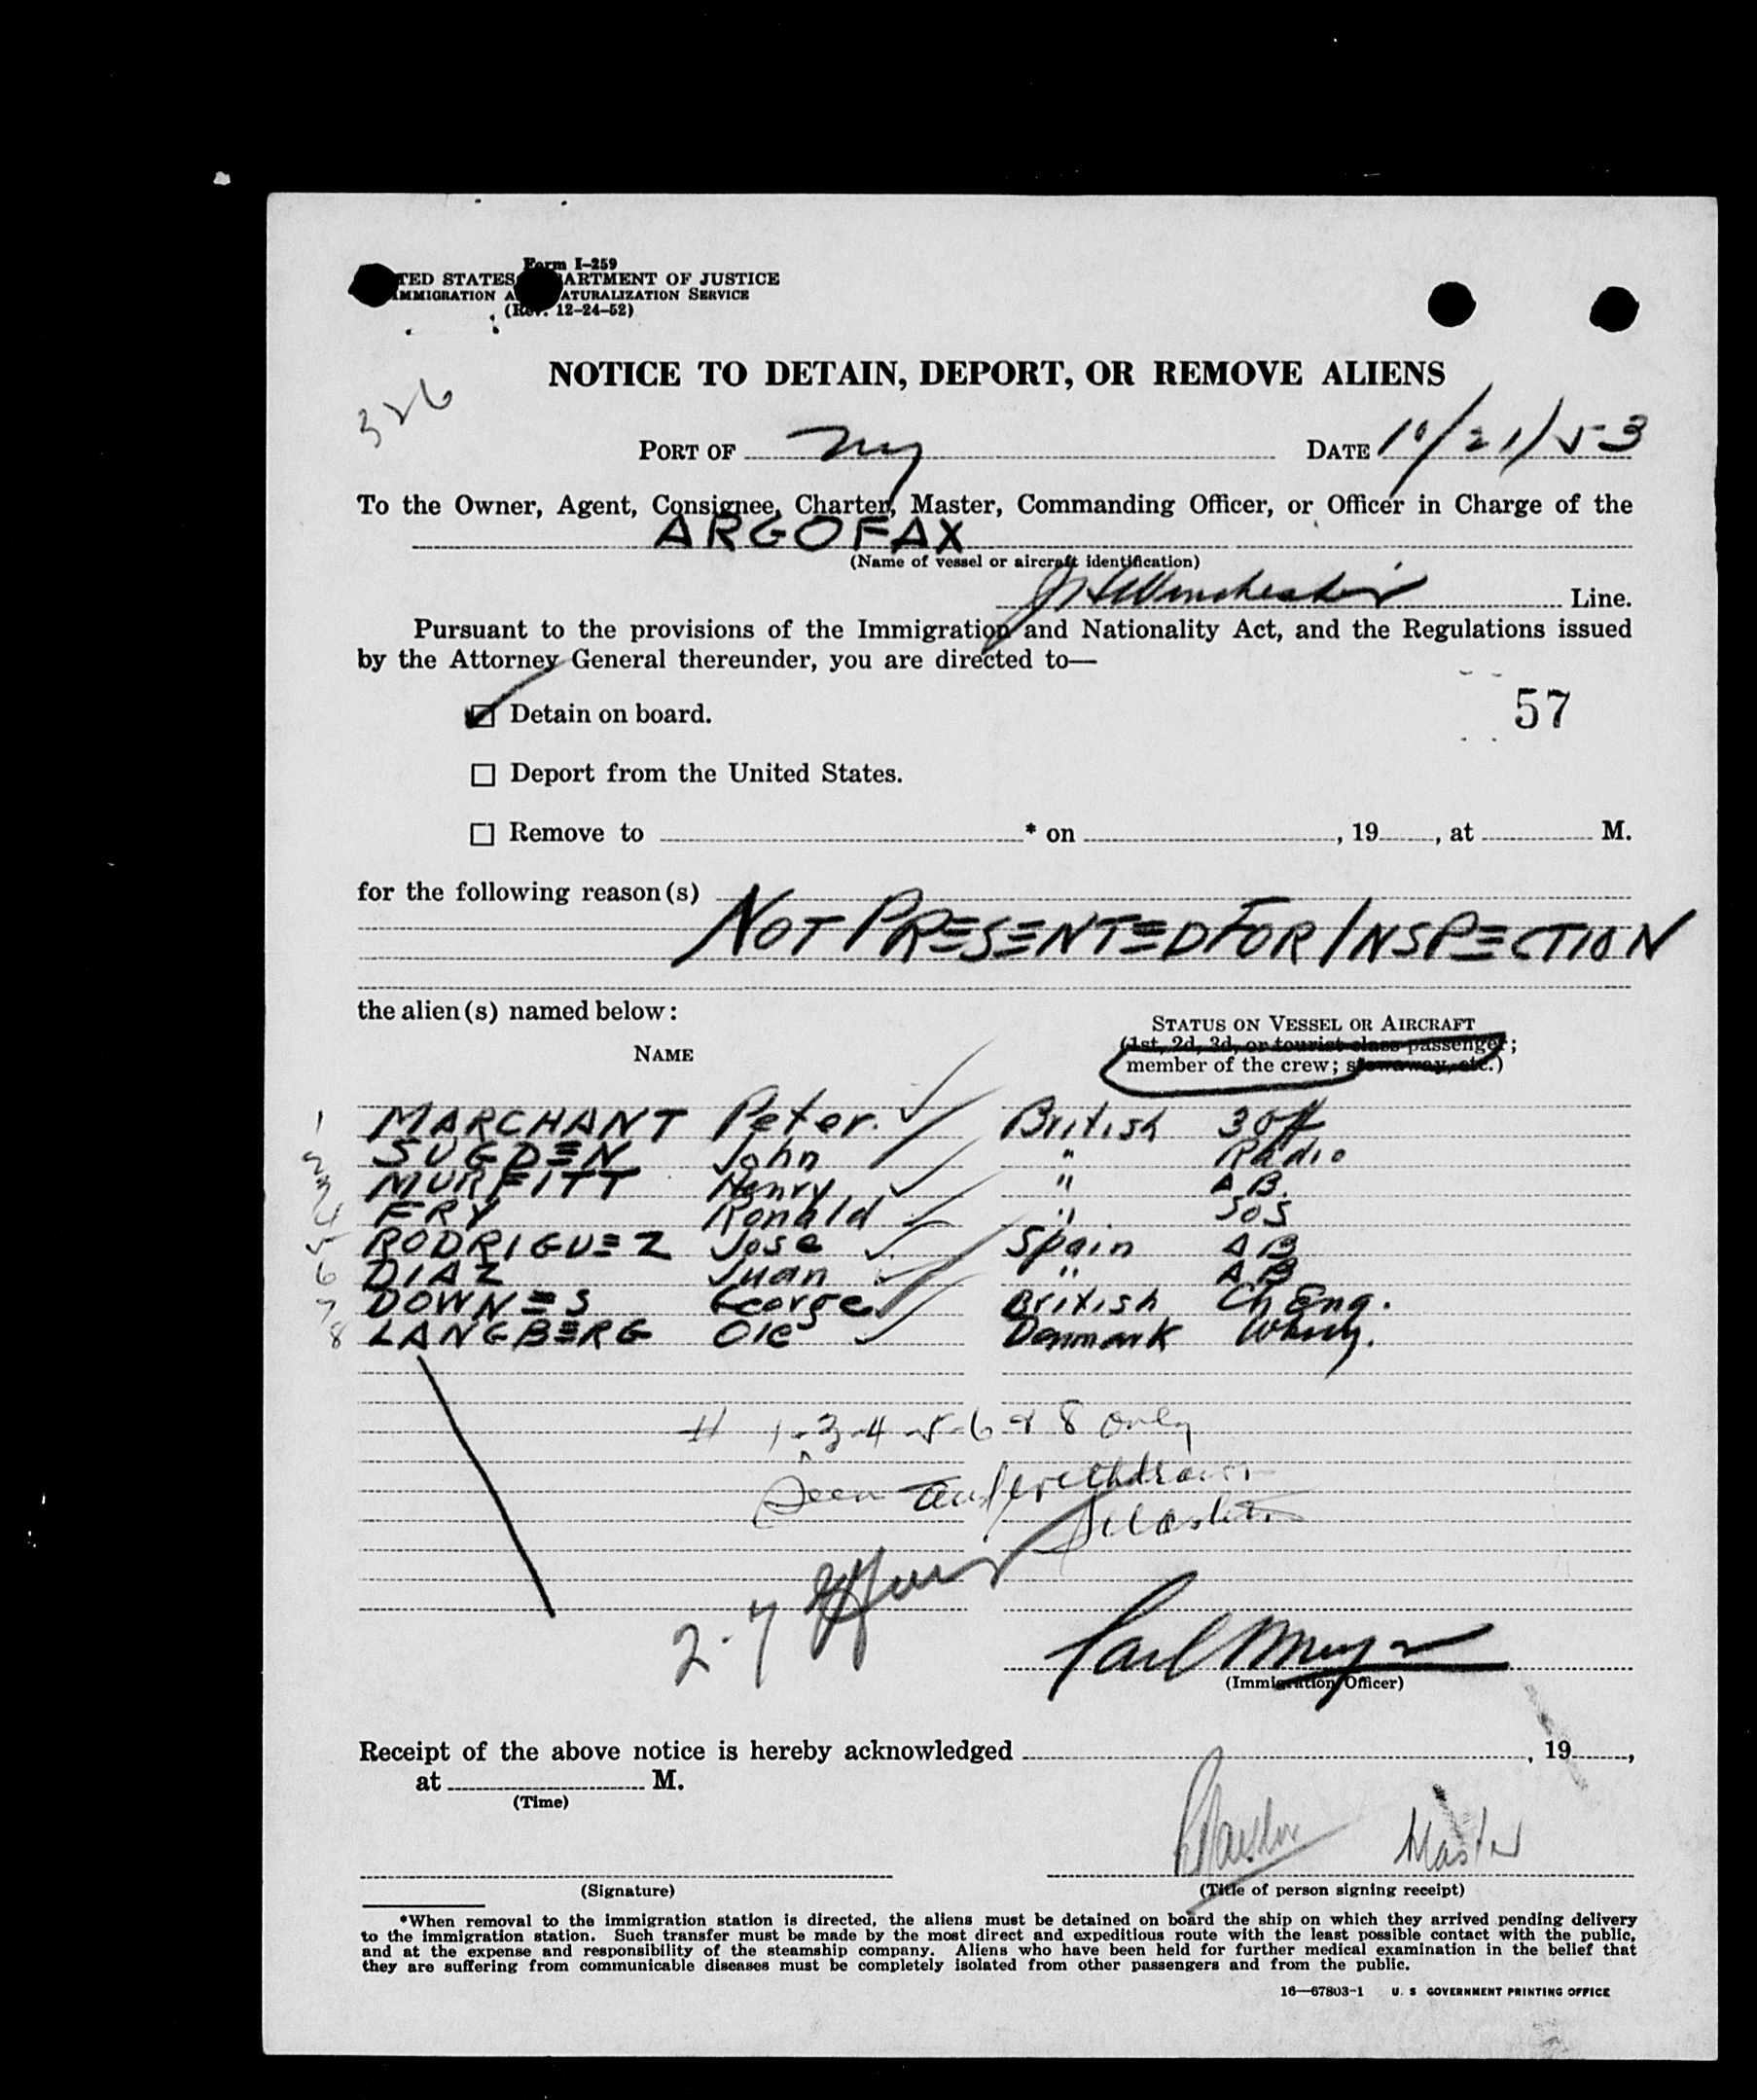 Form I-259
TED STATES ARTMENT OF JUSTICE
IMMIGRATION A ATURALIZATION SERVICE
(Rev. 12-24-52)
326
NOTICE TO DETAIN, DEPORT, OR REMOVE ALIENS
PORT OF NY DATE 10/21/53
To the Owner, Agent, Consignee, Charter, Master, Commanding Officer, or Officer in Charge of the
ARGOFAX
(Name of vessel or aircraft identification)
Winchester Line.
Pursuant to the provisions of the Immigration and Nationality Act, and the Regulations issued
by the Attorney General thereunder, you are directed to—
Detain on board.
57
Deport from the United States.
Remove to * on , 19 , at M.
for the following reason(s)
NOT PRESENTED FOR INSPECTION
the alien(s) named below:
STATUS ON VESSEL OR AIRCRAFT
NAME (1st, 2d, 3d, or tourist class passenger;
member of the crew; stowaway, etc.)
1 MARCHANT Peter. British 3 Off
2 SUGDEN John " Radio
3 MURFITT Henry " AB.
4 FRY Ronald " SOS
5 RODRIGUEZ Jose Spain AB
6 DIAZ Juan " AB
7 DOWNES George British Ch Eng.
8 LANGBERG Ole Denmark
1-3-4-5-6 & 8 only
Seen and withdrawn
2-7
Carl Meyer
(Immigration Officer)
Receipt of the above notice is hereby acknowledged , 19 ,
at M.
(Time)
Master
(Signature) (Title of person signing receipt)
*When removal to the immigration station is directed, the aliens must be detained on board the ship on which they arrived pending delivery
to the immigration station. Such transfer must be made by the most direct and expeditious route with the least possible contact with the public,
and at the expense and responsibility of the steamship company. Aliens who have been held for further medical examination in the belief that
they are suffering from communicable diseases must be completely isolated from other passengers and from the public.
16—67803-1 U. S GOVERNMENT PRINTING OFFICE